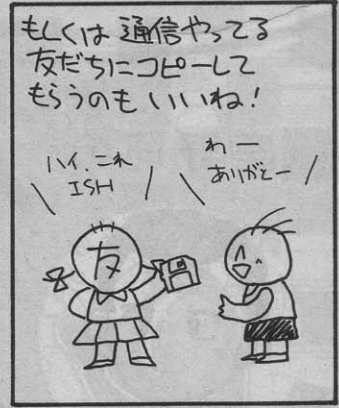 もしくは 通信やってる
友だちにコピーして
もらうのもいいね!
ハイ、これ
ISH
わー
ありがとー
友